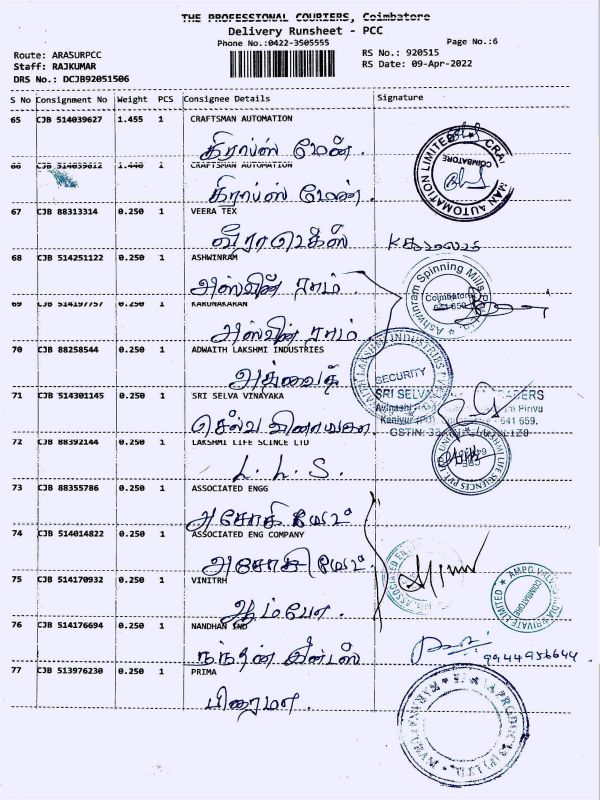 THE PROFESSIONAL COURIERS, Coimbatore
Delivery Runsheet - PCC
Phone No.:0422-3505555
Page No.:6
Route: ARASURPCC
RS No.: 920515
Staff: RAJKUMAR
RS Date: 09-Apr-2022
DRS No.: DCJB92051506
S No Consignment No Weight PCS Consignee Details Signature
65 CJB 514039627 1.455 1 CRAFTSMAN AUTOMATION
கிராப்ஸ் மேன்.
66 CJB 514039612 1.440 1 CRAFTSMAN AUTOMATION
கிராப்ஸ் மேன்.
COIMBATORE
67 CJB 88313314 0.250 1 VEERA TEX
வீராடெக்ஸ்
68 CJB 514251122 0.250 1 ASHWINRAM
அஸ்வின் ராம்.
Ashwinram Spinning Mills
Coimbatore
641 659
69 CJB 514197757 0.250 1 KARUNAKARAN
அஸ்வின் ராம்.
70 CJB 88258544 0.250 1 ADWAITH LAKSHMI INDUSTRIES
அத்வைத்
SECURITY
71 CJB 514301145 0.250 1 SRI SELVA VINAYAKA
செல்வ விநாயகா.
SRI SELVA
72 CJB 88392144 0.250 1 LAKSHMI LIFE SCINCE LTD
L. L. S.
73 CJB 88355786 0.250 1 ASSOCIATED ENGG
74 CJB 514014822 0.250 1 ASSOCIATED ENG COMPANY
75 CJB 514170932 0.250 1 VINITRH
ஆம்போ.
COIMBATORE
76 CJB 514176694 0.250 1 NANDHAN IND
நந்தன் இன்டஸ்
9944956644
77 CJB 513976230 0.250 1 PRIMA
பிரைமா.